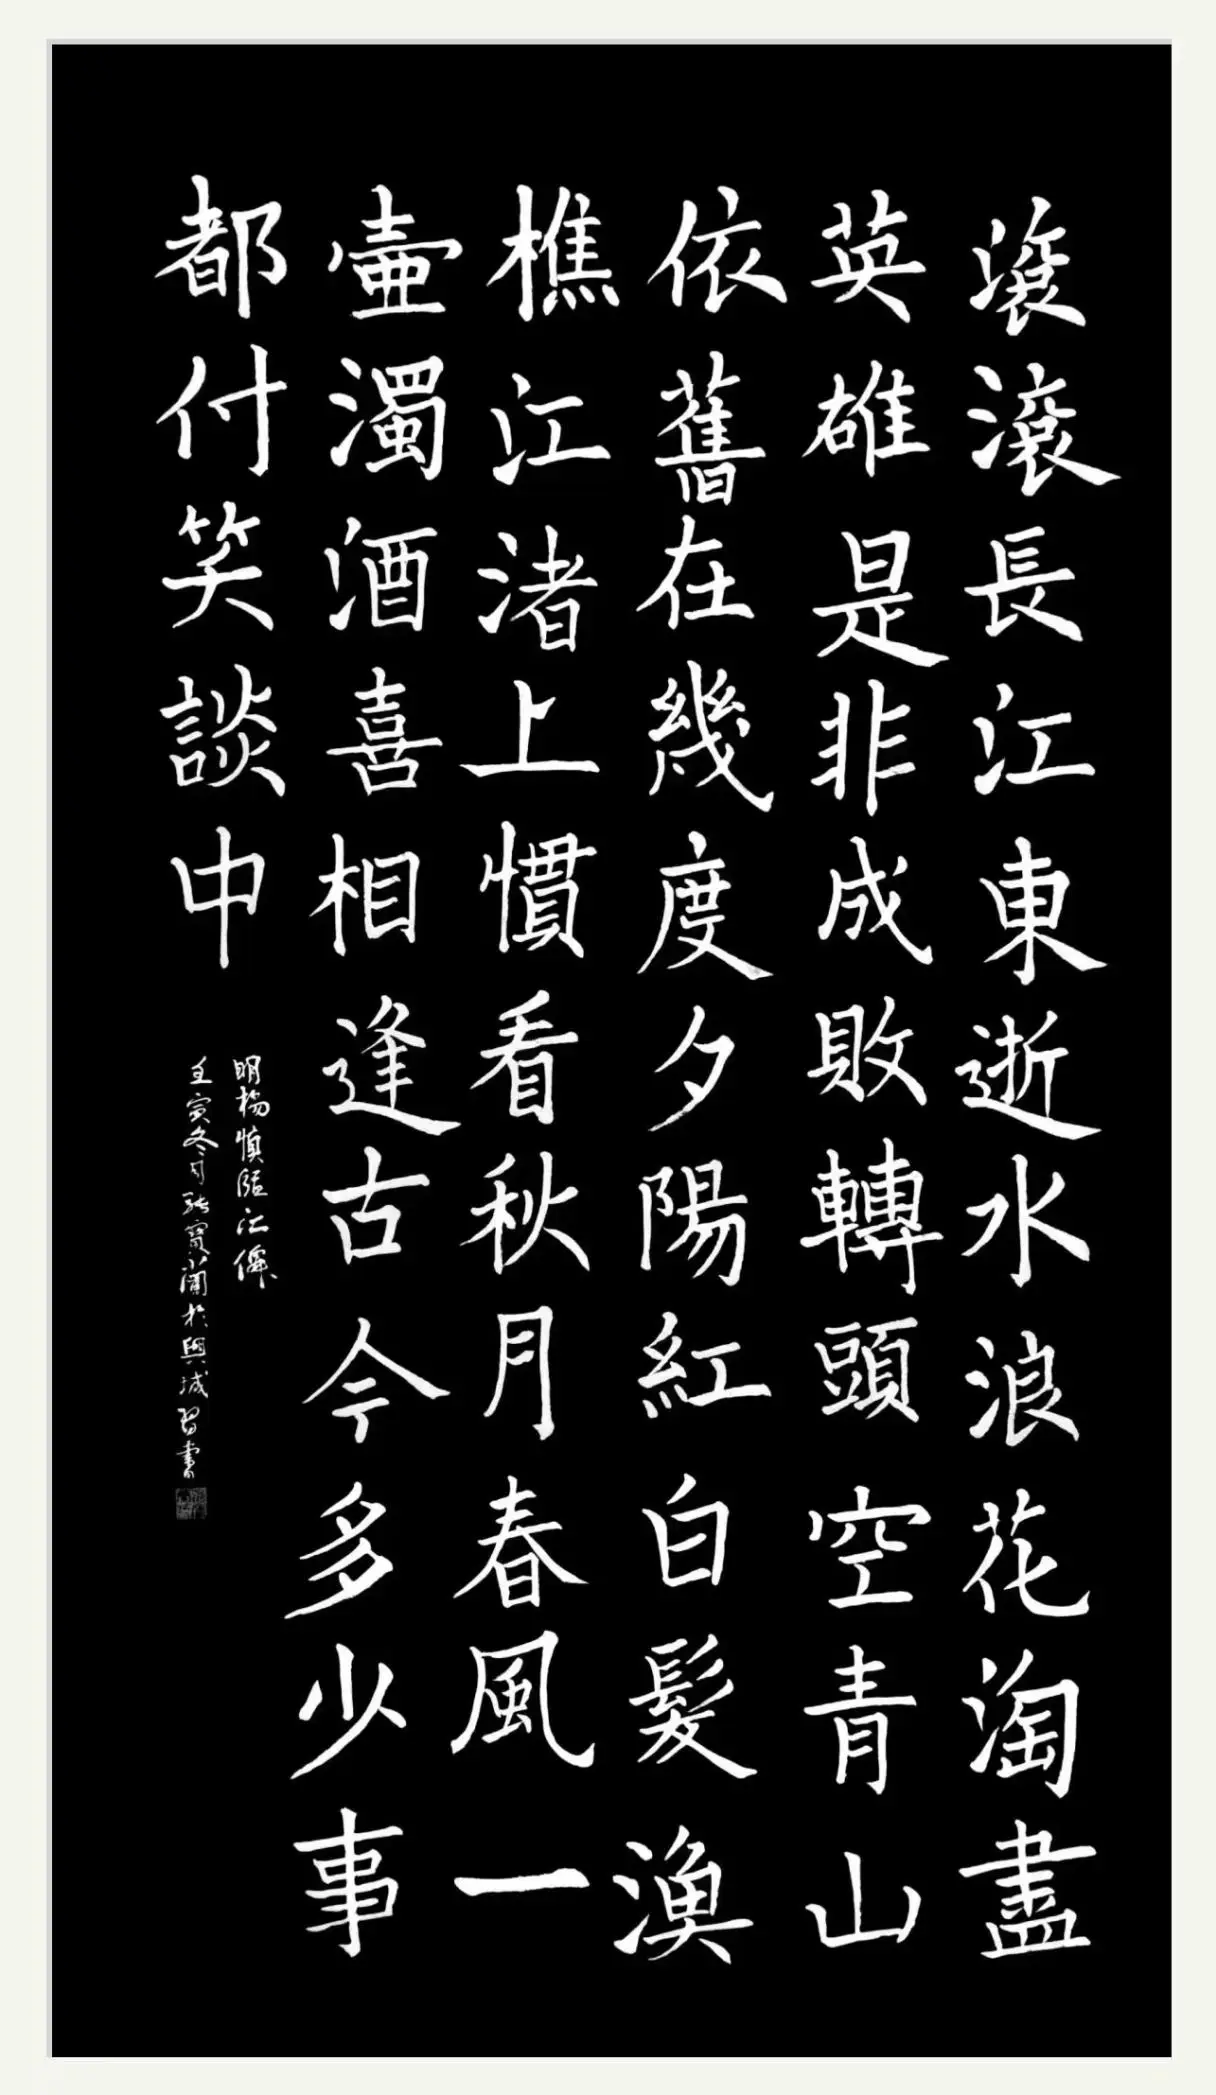 滾滾長江東逝水浪花淘盡
英雄是非成敗轉頭空青山
依舊在幾度夕陽紅白髮漁
樵江渚上慣看秋月春風一
壺濁酒喜相逢古今多少事
都付笑談中
明楊慎臨江僊
壬寅冬月張寶蘭於興城習書